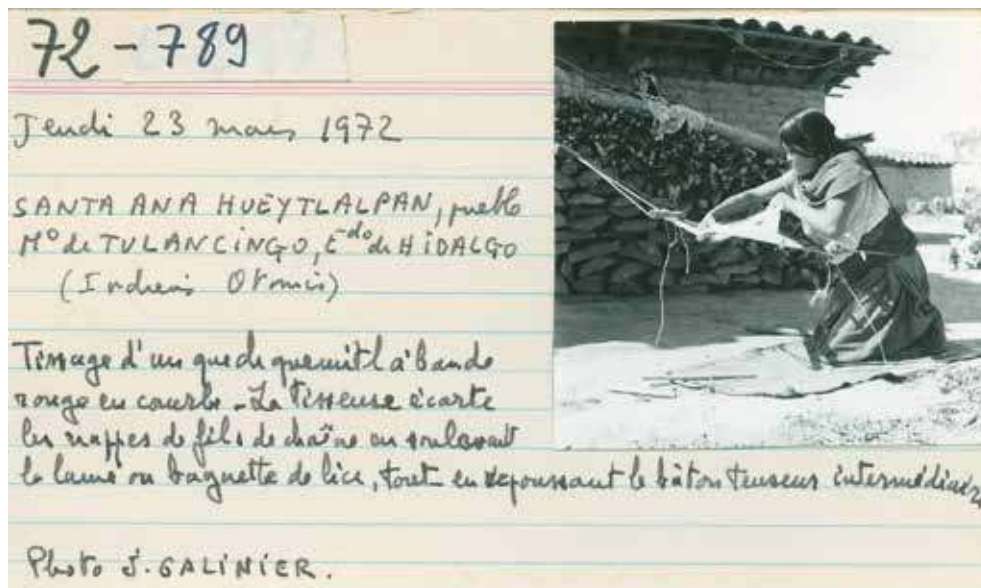 72-789
Jeudi 23 mars 1972
SANTA ANA HUEYTLALPAN, pueblo
Mº de TULANCINGO, Edo de HIDALGO
(Indiens Otomis)
Tissage d'un quechquemitl à bande
rouge en courbe - La Tisseuse écarte
les nappes de fils de chaîne en soulevant
la lame ou baguette de lice, tout en repoussant le bâton tenseur intermédiaire
Photo J. GALINIER.